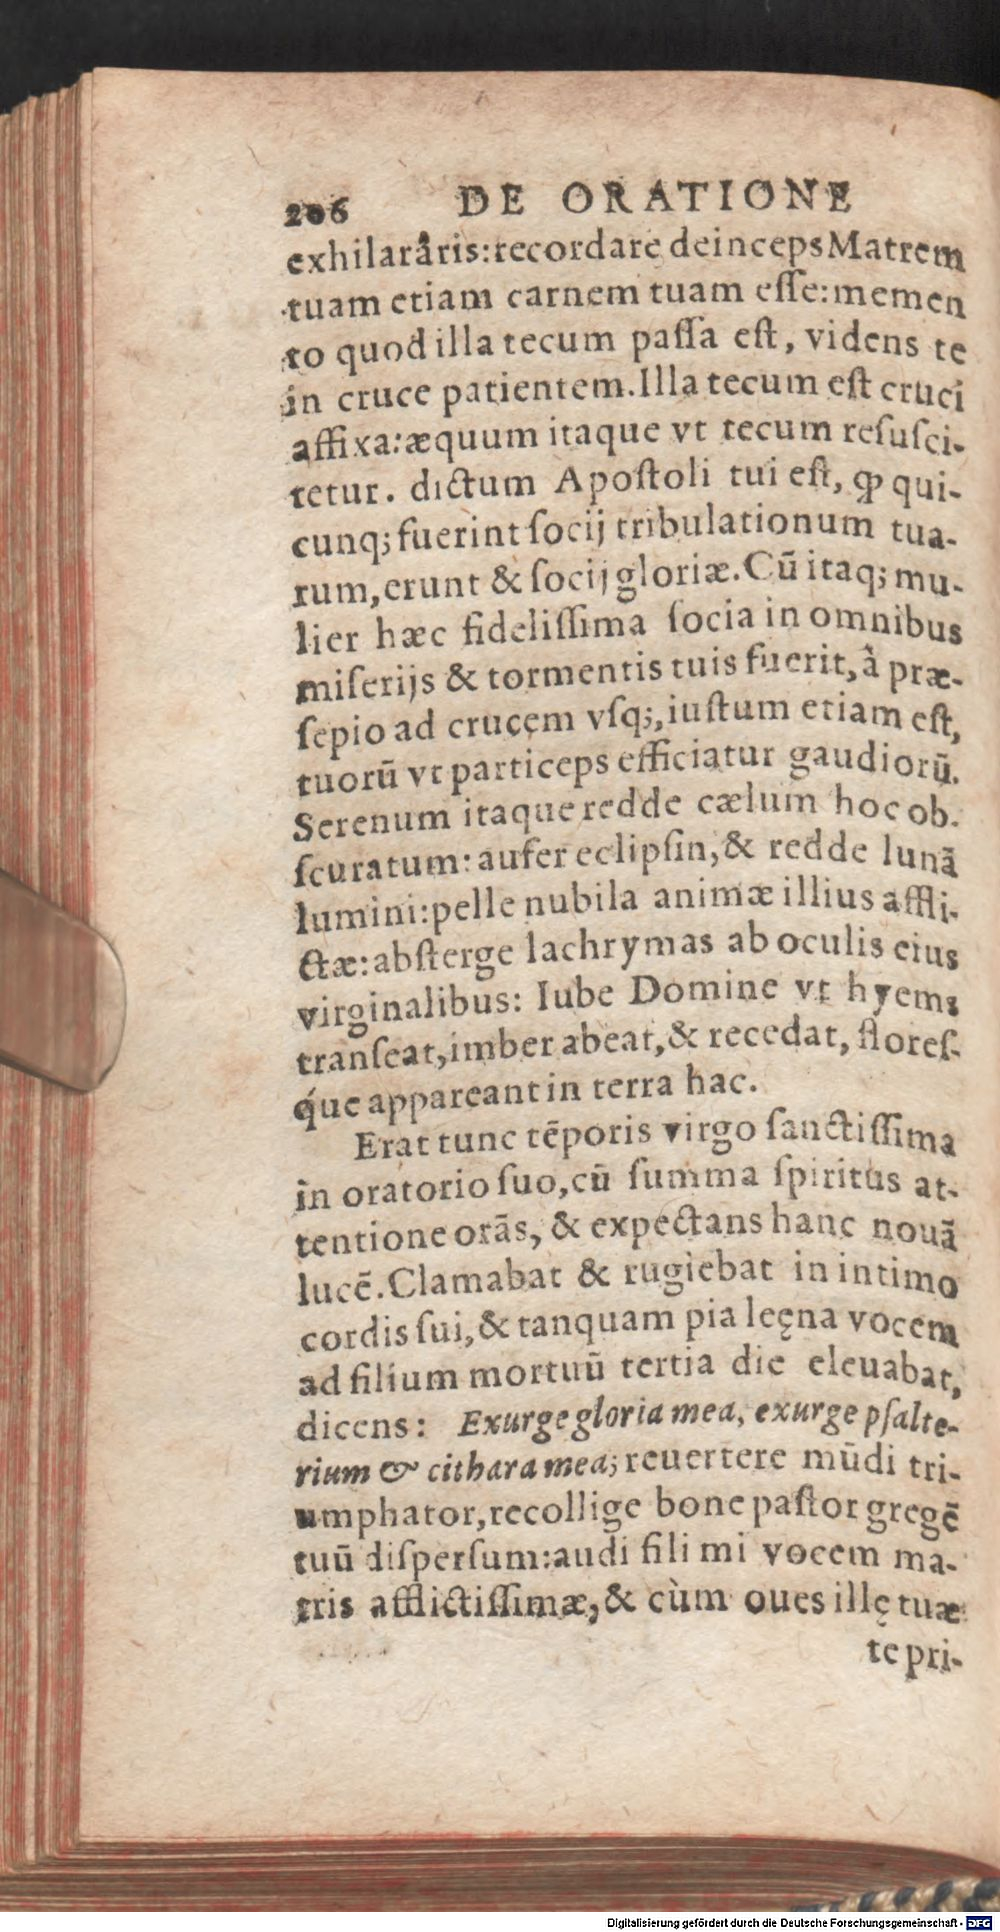 206 DE ORATIONE
exhilarâris: recordare deinceps Matrem
tuam etiam carnem tuam eſſe: memen
to quod illa tecum paſſa eſt, videns te
in cruce patientem. Illa tecum eſt cruci
affixa: æquum itaque vt tecum reſuſci-
tetur. dictum Apoſtoli tui eſt, ꝙ qui-
cunq; fuerint ſocij tribulationum tua-
rum, erunt & ſocij gloriæ. Cũ itaq; mu-
lier hæc fideliſſima ſocia in omnibus
miſerijs & tormentis tuis fuerit, à præ-
ſepio ad crucem vſq;, iuſtum etiam eſt,
tuorũ vt particeps efficiatur gaudiorũ.
Serenum itaque redde cælum hoc ob-
ſcuratum: aufer eclipſin, & redde lunã
lumini: pelle nubila animæ illius affli-
ctæ: abſterge lachrymas ab oculis eius
virginalibus: Iube Domine vt hyems
tranſeat, imber abeat, & recedat, floreſ-
q́ue appareant in terra hac.
Erat tunc tẽporis virgo ſanctiſſima
in oratorio ſuo, cũ ſumma ſpiritus at-
tentione orãs, & expectans hanc nouã
lucẽ. Clamabat & rugiebat in intimo
cordis ſui, & tanquam pia leęna vocem
ad filium mortuũ tertia die eleuabat,
dicens: Exurge gloria mea, exurge pſalte-
rium & cithara mea; reuertere mũdi tri-
umphator, recollige bone paſtor gregẽ
tuũ diſperſum: audi fili mi vocem ma-
tris afflictiſſimæ, & cùm oues illę tuæ
te pri-
Digitalisierung gefördert durch die Deutsche Forschungsgemeinschaft - DFG